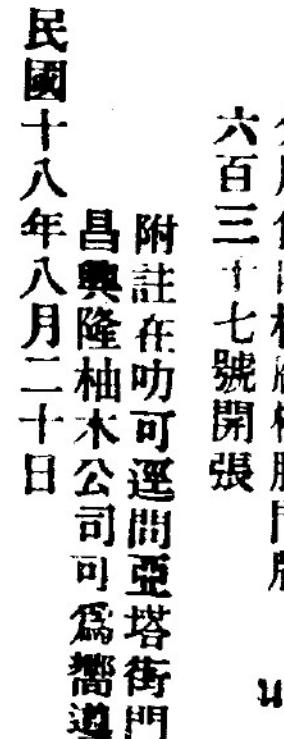 六百三十七號開張
附註在叻可逕問亞塔街門
昌興隆柚木公司可爲嚮導
民國十八年八月二十日